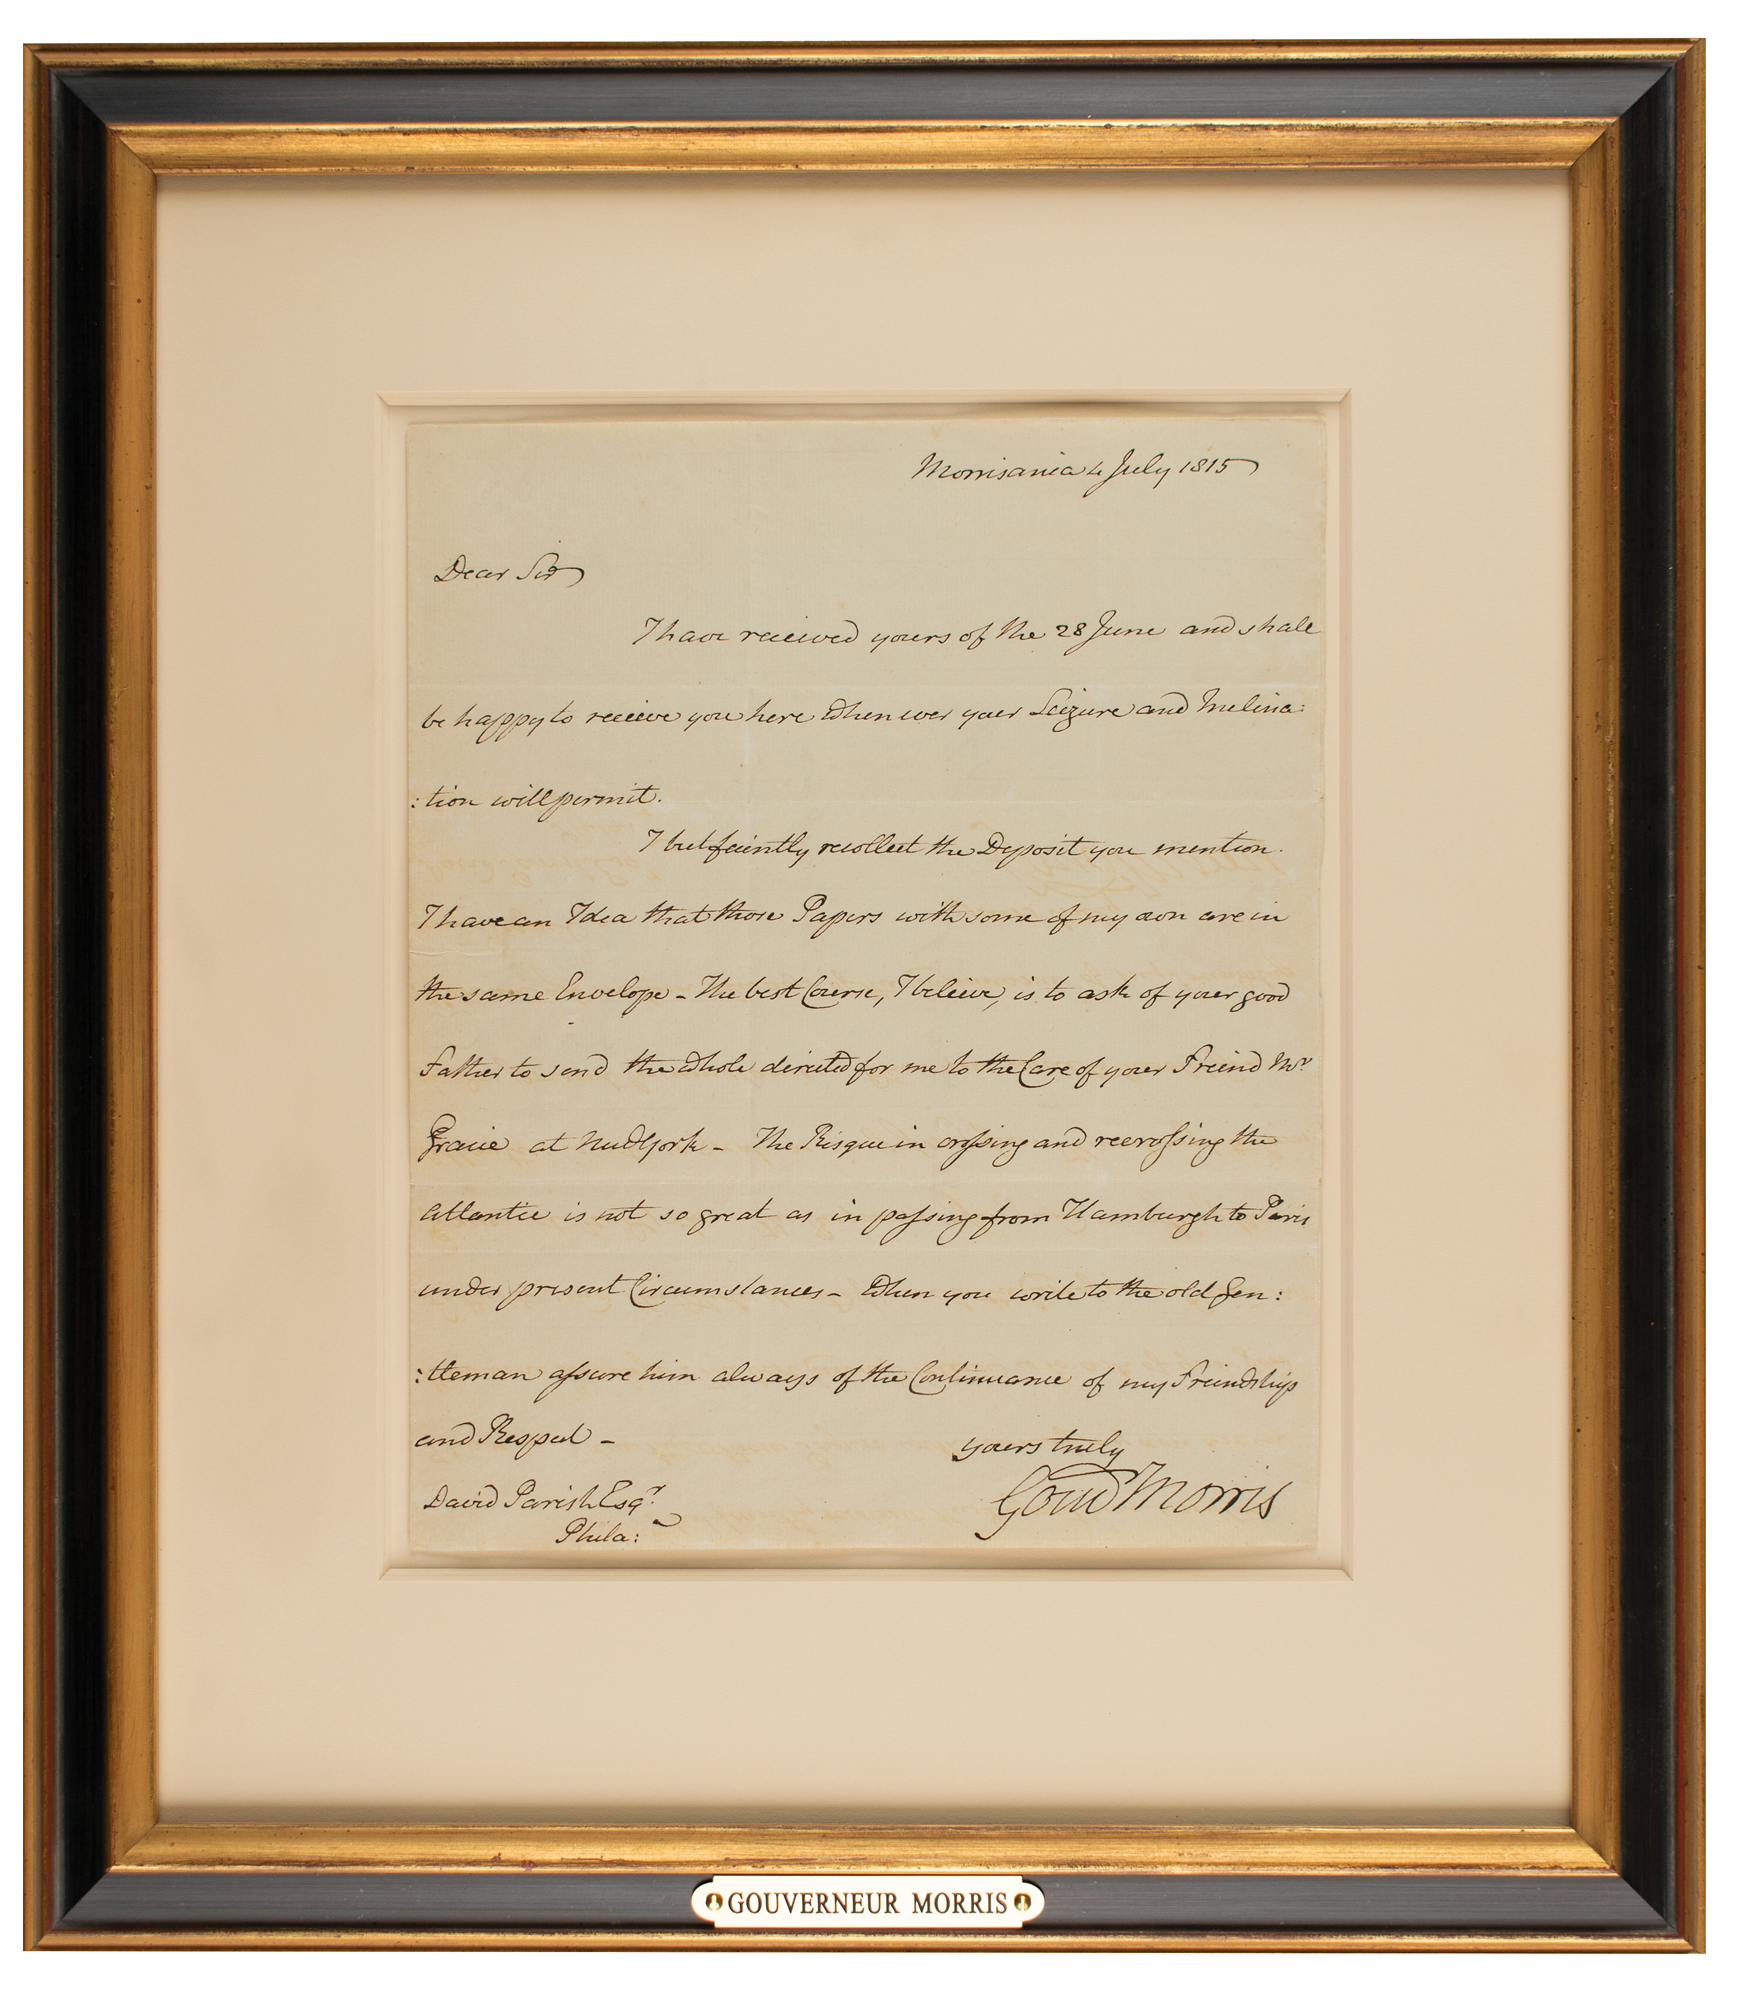 Morrisania 4 July 1815
Dear Sir
I have received yours of the 28 June and shall
be happy to receive you here whenever your Leizure and Inclina:
:tion will permit.
I but faintly recollect the Deposit you mention.
I have an Idea that those Papers with some of my own are in
the same Envelope – The best Course, I believe, is to ask of your good
Father to send the whole directed for me to the Care of your Friend Mr
Gracie at New York – The Risque in crossing and recrossing the
atlantic is not so great as in passing from Hamburgh to Paris
under present Circumstances – When you write to the old Gen:
:tleman assure him always of the Continuance of my Friendship
and Respect –
yours truly
Gouv Morris
David Parish Esqr.
Phila:
GOUVERNEUR MORRIS